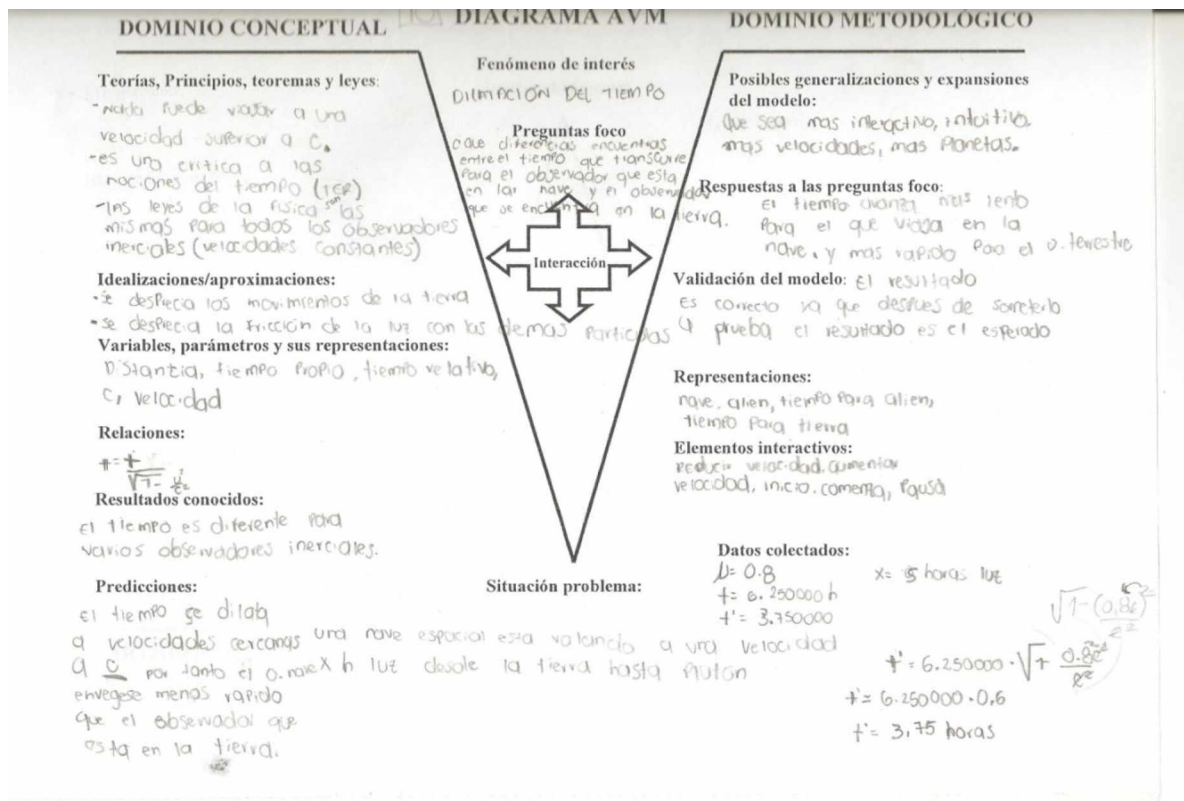 DOMINIO CONCEPTUAL
DIAGRAMA AVM
DOMINIO METODOLÓGICO
Teorías, Principios, teoremas y leyes:
-Nada puede viajar a una
velocidad superior a C.
-es una critica a las
nociones del tiempo (TER)
-las leyes de la fisica son las
mismas para todos los observadores
inerciales (velocidades constantes)
Idealizaciones/aproximaciones:
-se desprecia los movimientos de la tierra
-se desprecia la fricción de la luz con las demas particulas
Variables, parámetros y sus representaciones:
Distantia, tiempo propio, tiempo relativo,
C, velocidad
Relaciones:
t = t / √1 - v²/c²
Resultados conocidos:
El tiempo es diferente para
varios observadores inerciales.
Predicciones:
El tiempo se dilata
a velocidades cercanas
a C por tanto el o. nave
envegese menos rapido
que el observador que
esta en la tierra.
Fenómeno de interés
DILATACIÓN DEL TIEMPO
Preguntas foco
que diferencias encuentras
entre el tiempo que transcurre
para el observador que esta
en la nave y el observador
que se encuentra en la tierra.
Interacción
Situación problema:
una nave espacial esta volando a una velocidad
x h luz desde la tierra hasta Pluton
Posibles generalizaciones y expansiones
del modelo:
Que sea mas interactivo, intuitivo.
mas velocidades, mas Planetas.
Respuestas a las preguntas foco:
El tiempo avanza mas lento
Para el que viaja en la
nave, y mas rapido para el o. terrestre
Validación del modelo: El resultado
Es correcto ya que despues de someterlo
a prueba el resultado es el esperado
Representaciones:
nave, alien, tiempo para alien,
tiempo para tierra
Elementos interactivos:
Reducir velocidad, aumentar
velocidad, inicio, comenta, Pausa
Datos colectados:
= 0.8
x= 5 horas luz
t= 6.250000 h
t'= 3.750000
√1-(0,8c)²/c²
t'= 6.250000 · √1 0.8c²/c²
t'= 6.250000 · 0,6
t'= 3,75 horas